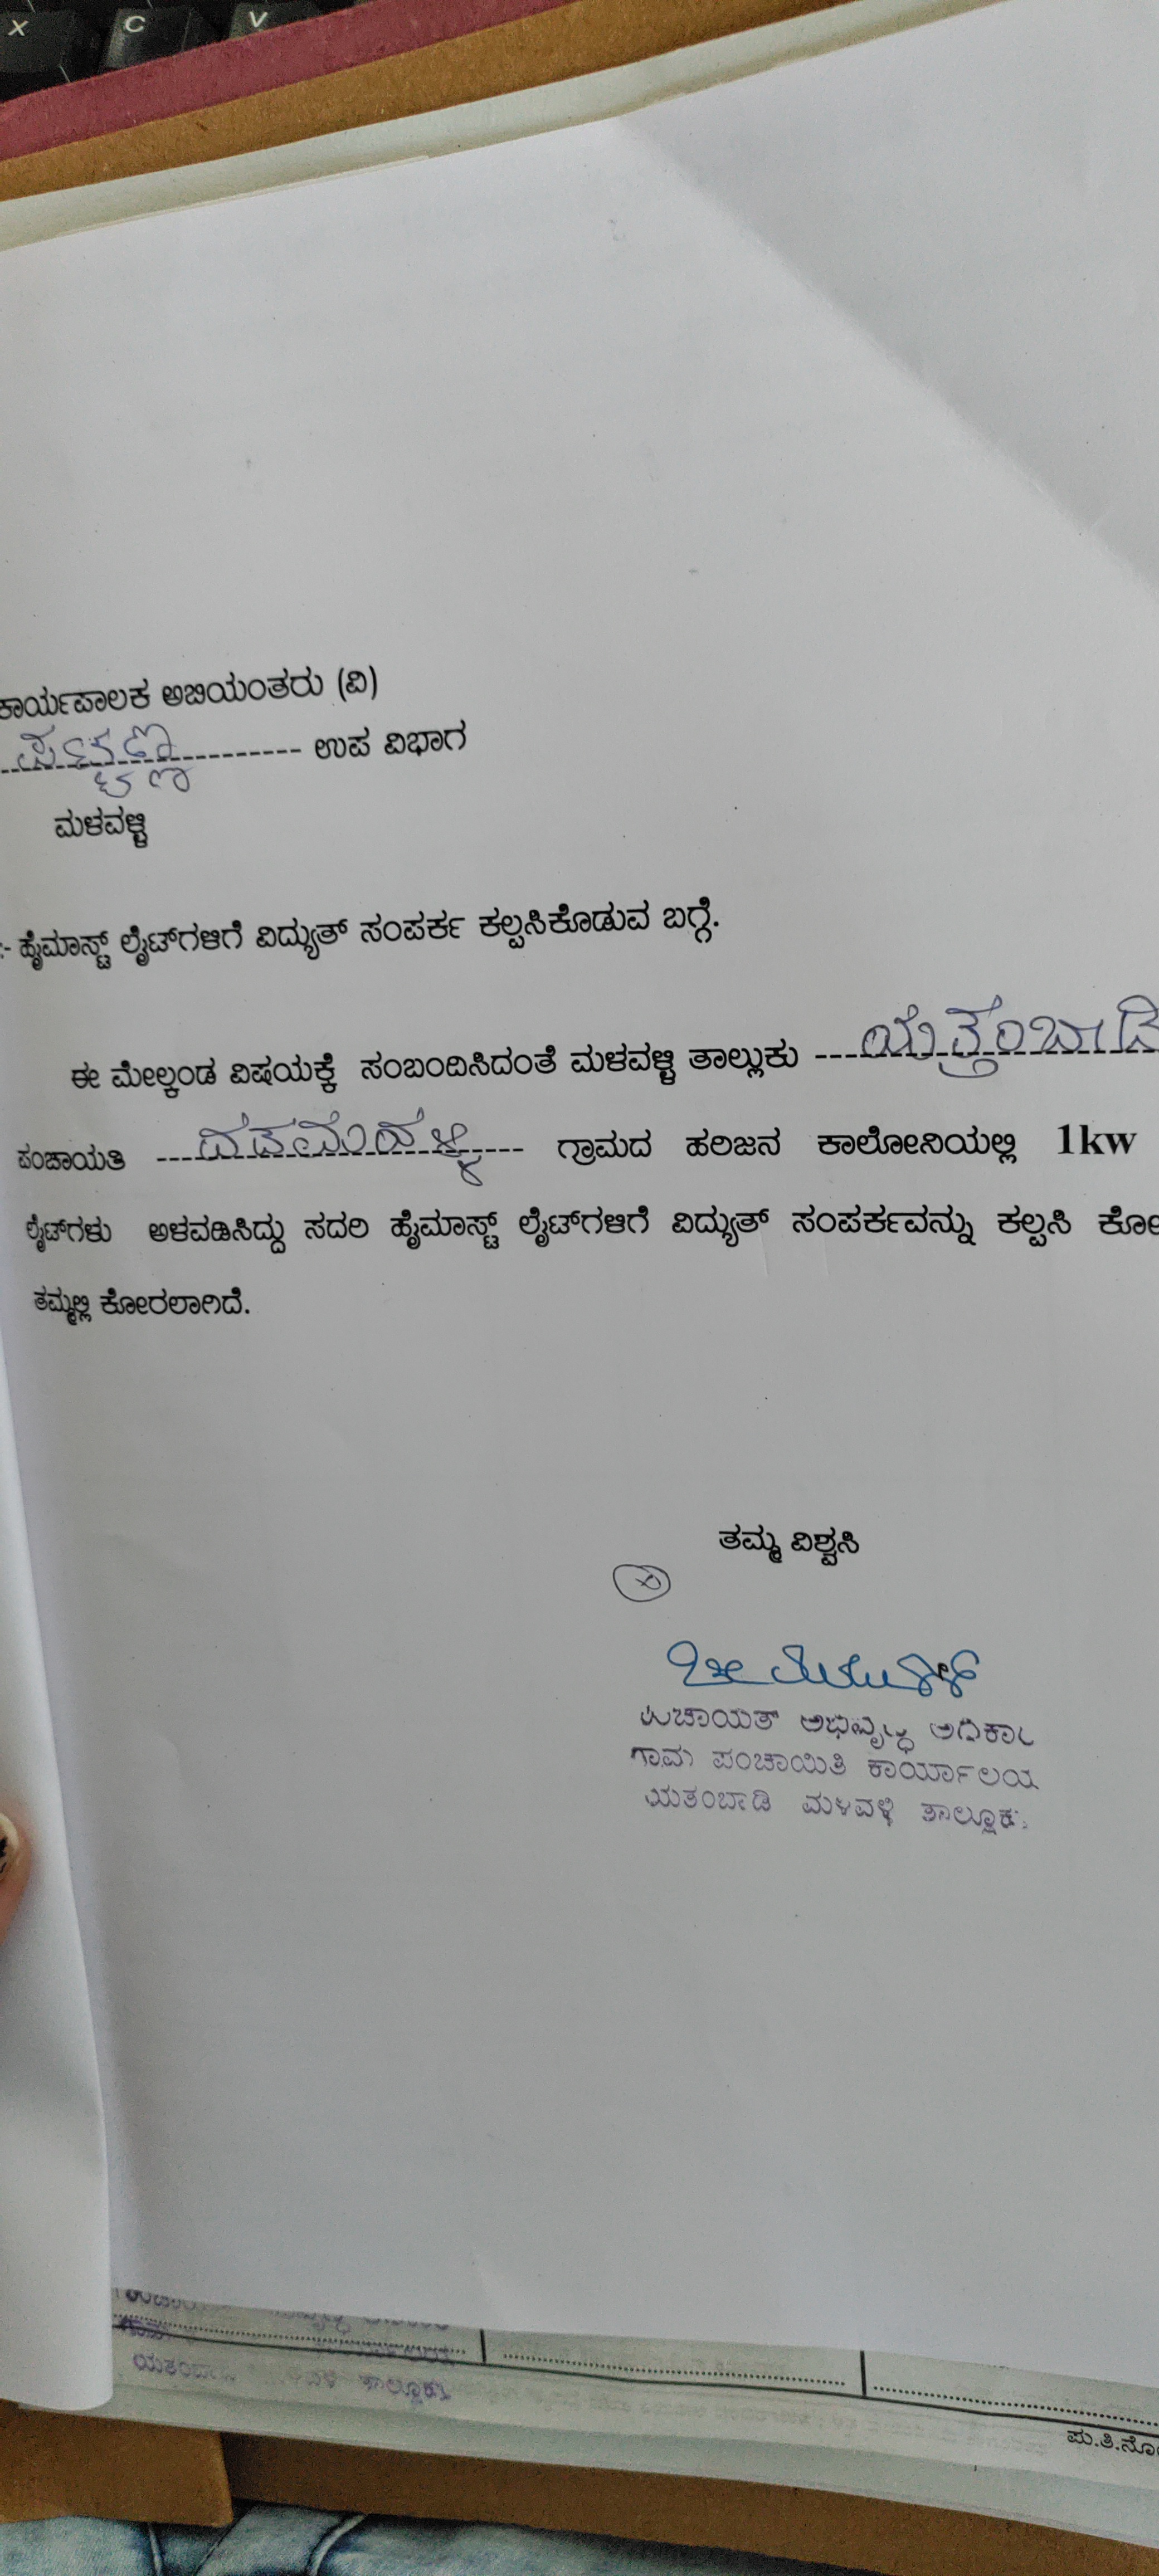 X C V
ಕಾರ್ಯಪಾಲಕ ಅಭಿಯಂತರು (ವಿ)
---------- ಉಪ ವಿಭಾಗ
ಮಳವಳ್ಳಿ
:- ಹೈಮಾಸ್ಟ್ ಲೈಟ್‌ಗಳಿಗೆ ವಿದ್ಯುತ್ ಸಂಪರ್ಕ ಕಲ್ಪಸಿಕೊಡುವ ಬಗ್ಗೆ.
ಈ ಮೇಲ್ಕಂಡ ವಿಷಯಕ್ಕೆ ಸಂಬಂದಿಸಿದಂತೆ ಮಳವಳ್ಳಿ ತಾಲ್ಲುಕು --- ಯತ್ತಂಬಾಡಿ
ಪಂಚಾಯತಿ --- ಗ್ರಾಮದ ಹರಿಜನ ಕಾಲೋನಿಯಲ್ಲಿ 1kw
ಲೈಟ್‌ಗಳು ಅಳವಡಿಸಿದ್ದು ಸದರಿ ಹೈಮಾಸ್ಟ್ ಲೈಟ್‌ಗಳಿಗೆ ವಿದ್ಯುತ್ ಸಂಪರ್ಕವನ್ನು ಕಲ್ಪಸಿ ಕೋ
ತಮ್ಮಲ್ಲಿ ಕೋರಲಾಗಿದೆ.
ತಮ್ಮ ವಿಶ್ವಸಿ
ಪಂಚಾಯತ್ ಅಭಿವೃದ್ಧಿ ಅಧಿಕಾರಿ
ಗ್ರಾಮ ಪಂಚಾಯಿತಿ ಕಾರ್ಯಾಲಯ
ಯತಂಬಾಡಿ ಮಳವಳ್ಳಿ ತಾಲ್ಲೂಕು.
ತಾಲ್ಲೂಕು
ಪು.ತಿ.ನೋ